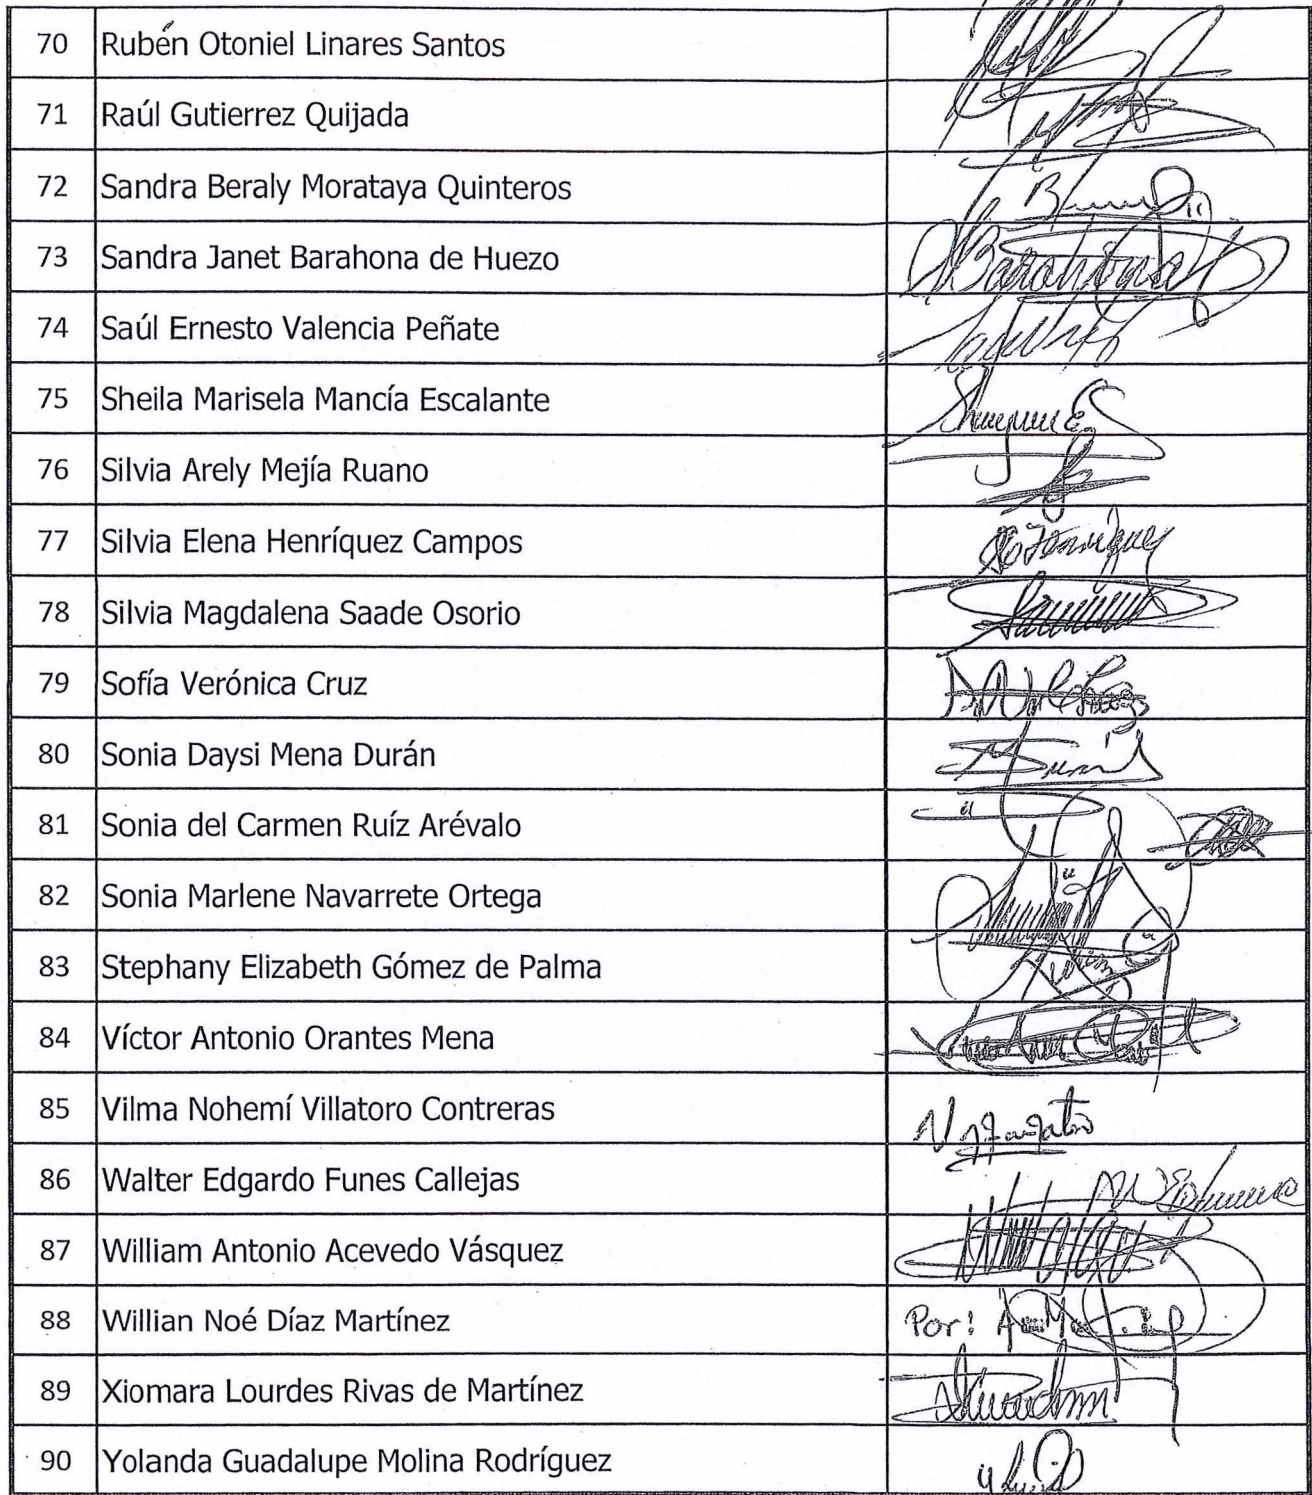 70 Rubén Otoniel Linares Santos
71 Raúl Gutierrez Quijada
72 Sandra Beraly Morataya Quinteros
73 Sandra Janet Barahona de Huezo Barahona
74 Saúl Ernesto Valencia Peñate
75 Sheila Marisela Mancía Escalante
76 Silvia Arely Mejía Ruano
77 Silvia Elena Henríquez Campos
78 Silvia Magdalena Saade Osorio
79 Sofía Verónica Cruz
80 Sonia Daysi Mena Durán
81 Sonia del Carmen Ruíz Arévalo
82 Sonia Marlene Navarrete Ortega
83 Stephany Elizabeth Gómez de Palma
84 Víctor Antonio Orantes Mena
85 Vilma Nohemí Villatoro Contreras
86 Walter Edgardo Funes Callejas
87 William Antonio Acevedo Vásquez
88 Willian Noé Díaz Martínez Por:
89 Xiomara Lourdes Rivas de Martínez
90 Yolanda Guadalupe Molina Rodríguez